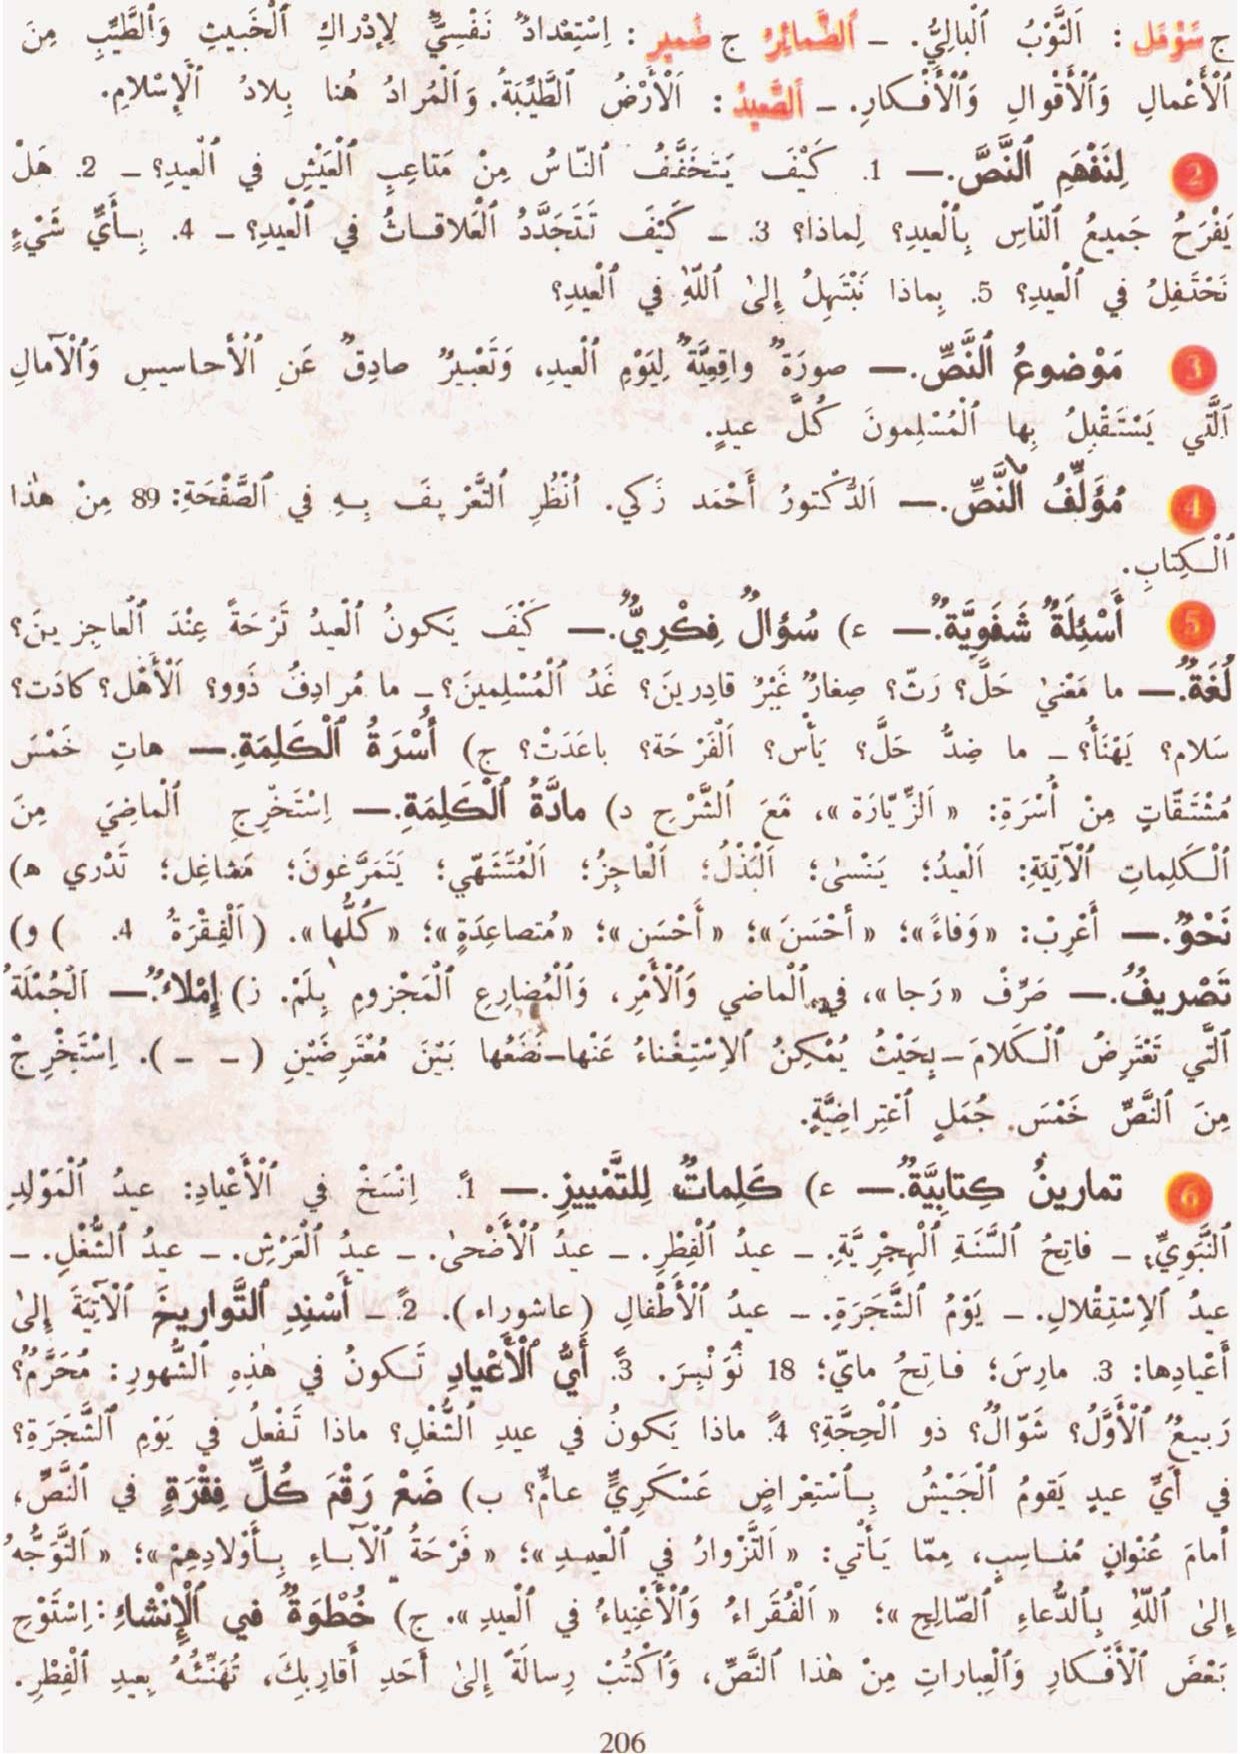 ج سَوْمَل : اَلثَّوْبُ ٱلْبالِيُّ. ـ ٱلضَّمائِرُ ج ضَمير : اِسْتِعْدادٌ نَفْسِيٌّ لِإِدْراكِ ٱلْخَبيثِ وَٱلطَّيِّبِ مِنَ
ٱلْأَعْمالِ وَٱلْأَقْوالِ وَٱلْأَفْكارِ. ـ ٱلصَّعيدُ : اَلْأَرْضُ ٱلطَّيِّبَةُ. وَٱلْمُرادُ هُنا بِلادُ ٱلْإِسْلامِ.
2 لِنَفْهَمِ ٱلنَّصَّ. ـ 1. كَيْفَ يَتَخَفَّفُ ٱلنّاسُ مِنْ مَتاعِبِ ٱلْعَيْشِ في ٱلْعيدِ؟ ـ 2. هَلْ
يَفْرَحُ جَميعُ ٱلنّاسِ بِٱلْعيدِ؟ لِماذا؟ 3. ـ كَيْفَ تَتَجَدَّدُ ٱلْعَلاقاتُ في ٱلْعيدِ؟ ـ 4. بِأَيِّ شَيْءٍ
نَحْتَفِلُ في ٱلْعيدِ؟ 5. بِماذا نَبْتَهِلُ إِلىٰ ٱللّٰهِ في ٱلْعيدِ؟
3 مَوْضوعُ ٱلنَّصِّ. ـ صورَةٌ واقِعِيَّةٌ لِيَوْمِ ٱلْعيدِ، وَتَعْبيرٌ صادِقٌ عَنِ ٱلْأَحاسيسِ وَٱلْآمالِ
ٱلَّتي يَسْتَقْبِلُ بِها ٱلْمُسْلِمونَ كُلَّ عيدٍ.
4 مُؤَلِّفُ ٱلنَّصِّ. ـ اَلدُّكْتورُ أَحْمَد زَكي. اُنْظُرِ ٱلتَّعْريفَ بِهِ في ٱلصَّفْحَةِ: 89 مِنْ هٰذا
ٱلْكِتابِ.
5 أَسْئِلَةٌ شَفَوِيَّةٌ. ـ ء) سُؤالٌ فِكْرِيٌّ. ـ كَيْفَ يَكونُ ٱلْعيدُ تَرْحَةً عِنْدَ ٱلْعاجِزينَ؟
لُغَةٌ. ـ ما مَعْنىٰ حَلَّ؟ رَثّ؟ صِغارٌ غَيْرُ قادِرينَ؟ غَدُ ٱلْمُسْلِمينَ؟ ـ ما مُرادِفُ ذَوو؟ اَلْأَهْل؟ كادَت؟
سَلام؟ يَهْنَأُ؟ ـ ما ضِدُّ حَلَّ؟ يَأْس؟ اَلْفَرْحَة؟ باعَدَتْ؟ ج) أُسْرَةُ ٱلْكَلِمَةِ. ـ هاتِ خَمْسَ
مُشْتَقّاتٍ مِنْ أُسْرَةِ: « اَلزِّيّارَة »، مَعَ ٱلشَّرْحِ د) مادَّةُ ٱلْكَلِمَةِ. ـ اِسْتَخْرِجِ ٱلْماضِيَ مِنَ
ٱلْكَلِماتِ ٱلْآتِيَةِ: اَلْعيدُ؛ يَنْسىٰ؛ اَلْبَذْلُ؛ اَلْعاجِزُ؛ اَلْمُتَشَهّي؛ يَتَمَرَّغونَ؛ مَشاغِل؛ تَدْري ه)
نَحْوٌ. ـ أَعْرِبْ: «وَفاءً»؛ «أَحْسَنَ»؛ «أَحْسَن»؛ «مُتصاعِدَةٍ»؛ «كُلُّها». (اَلْفِقْرَةُ 4. ) و)
تَصْريفٌ. ـ صَرِّفْ «رَجا»، في ٱلْماضي وَٱلْأَمْرِ، وَٱلْمُضارِعِ ٱلْمَجْزومِ بِلَمْ. ز) إِمْلاءٌ. ـ اَلْجُمْلَةُ
ٱلَّتي تَعْتَرِضُ ٱلْكَلامَ ـ بِحَيْثُ يُمْكِنُ ٱلِاسْتِغْناءُ عَنْها ـ نَضَعُها بَيْنَ مُعْتَرِضَيْنِ ( ـ ـ ). اِسْتَخْرِجْ
مِنَ ٱلنَّصِّ خَمْسَ جُمَلٍ ٱعْتِراضِيَّةٍ.
6 تمارينُ كِتابِيَّةٌ. ـ ء) كَلِماتٌ لِلتَّمْييزِ. ـ 1ً. اِنْسَخْ في ٱلْأَعْيادِ: عيدُ ٱلْمَوْلِدِ
ٱلنَّبَوِيِّ. ـ فاتِحُ ٱلسَّنَةِ ٱلْهِجْرِيَّةِ. ـ عيدُ ٱلْفِطْرِ. ـ عيدُ ٱلْأَضْحىٰ. ـ عيدُ ٱلْعَرْشِ. ـ عيدُ ٱلشُّغْلِ. ـ
عيدُ ٱلِاسْتِقْلالِ. ـ يَوْمُ ٱلشَّجَرَةِ. ـ عيدُ ٱلْأَطْفالِ (عاشوراء). 2ً. ـ أَسْنِدِ ٱلتَّواريخَ ٱلْآتِيَةَ إِلىٰ
أَعْيادِها: 3. مارِسَ؛ فاتِحُ مايّ؛ 18 نُوَنْبِرَ. 3ً. أَيُّ ٱلْأَعْيادِ تَكونُ في هٰذِهِ ٱلشُّهورِ: مُحَرَّمٌ؟
رَبيعٌ ٱلْأَوَّلُ؟ شَوّالٌ؟ ذو ٱلْحِجَّةِ؟ 4ً. ماذا يَكونُ في عيدِ ٱلشُّغْلِ؟ ماذا تَفْعلُ في يَوْمِ ٱلشَّجَرَةِ؟
في أَيِّ عيدٍ يَقومُ ٱلْجَيْشُ بِٱسْتِعْراضٍ عَسْكَرِيٍّ عامٍّ؟ ب) ضَعْ رَقْمَ كُلِّ فِقْرَةٍ في ٱلنَّصِّ،
أَمامَ عُنْوانٍ مُناسِبٍ، مِمّا يَأْتي: « اَلتَّزْوارُ في ٱلْعيدِ »؛ « فَرْحَةُ ٱلْآباءِ بِأَوْلادِهِمْ »؛ « اَلتَّوَجُّهُ
إِلىٰ ٱللّٰهِ بِٱلدُّعاءِ ٱلصّالِحِ »؛ « اَلْفُقَراءُ وَٱلْأَغْنِياءُ في ٱلْعيدِ ». ج) خُطْوَةٌ في ٱلْإِنْشاءِ: اِسْتَوْحِ
بَعْضَ ٱلْأَفْكارِ وَٱلْعِباراتِ مِنْ هٰذا ٱلنَّصِّ، وَٱكْتُبْ رِسالَةً إِلىٰ أَحَدِ أَقارِبِكَ، تُهَنِّئُهُ بِعيدِ ٱلْفِطْرِ.
206